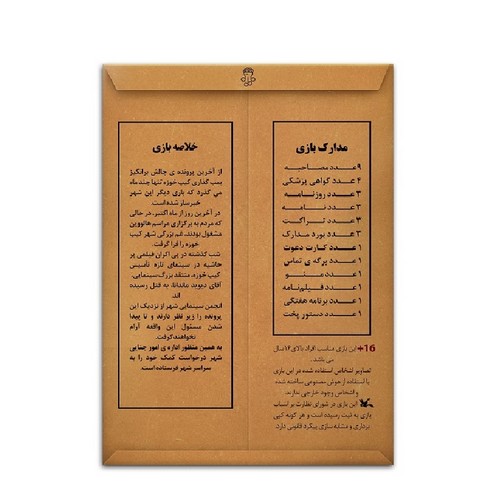 مدارک بازی
۹ عدد مصاحبه
۴ عدد گواهی پزشکی
۳ عدد روزنامه
۳ عدد نامه
۲ عدد تراکت
۳ عدد بورد مدارک
۱ عدد کارت دعوت
۱ عدد برگه ی تماس
۱ عدد منو
۱ عدد فیلم‌نامه
۱ عدد برنامه هفتگی
۱ عدد دستور پخت
+16 این بازی مناسب افراد بالای ۱۶ سال
می باشد .
تصاویر اشخاص استفاده شده در این بازی
با استفاده از هوش مصنوعی ساخته شده
و اشخاص وجود خارجی ندارند.
این بازی در شورای نظارت بر اسباب
بازی به ثبت رسیده است و هر گونه کپی
برداری و مشابه سازی پیگرد قانونی دارد.
خلاصه بازی
از آخرین پرونده ی چالش برانگیز
بمب گذاری کیپ خوزه تنها چند ماه
می گذرد که باری دیگر این شهر
خبرساز شده است.
در آخرین روز از ماه اکتبر، در حالی
که مردم به برگزاری مراسم هالووین
مشغول بودند، غم بزرگی شهر کیپ
خوزه را فرا گرفت.
شب گذشته در پی اکران فیلمی پر
حاشیه در سینمای تازه تأسیس
کیپ خوزه، منتقد بزرگ سینمایی،
آقای دیوید ماندانا، به قتل رسیده
اند.
انجمن سینمایی شهر از نزدیک این
پرونده را زیر نظر دارند و تا پیدا
شدن مسئول این واقعه آرام
نخواهند گرفت.
به همین منظور اداره ی امور جنایی
شهر درخواست کمک خود را به
سراسر شهر فرستاده است.